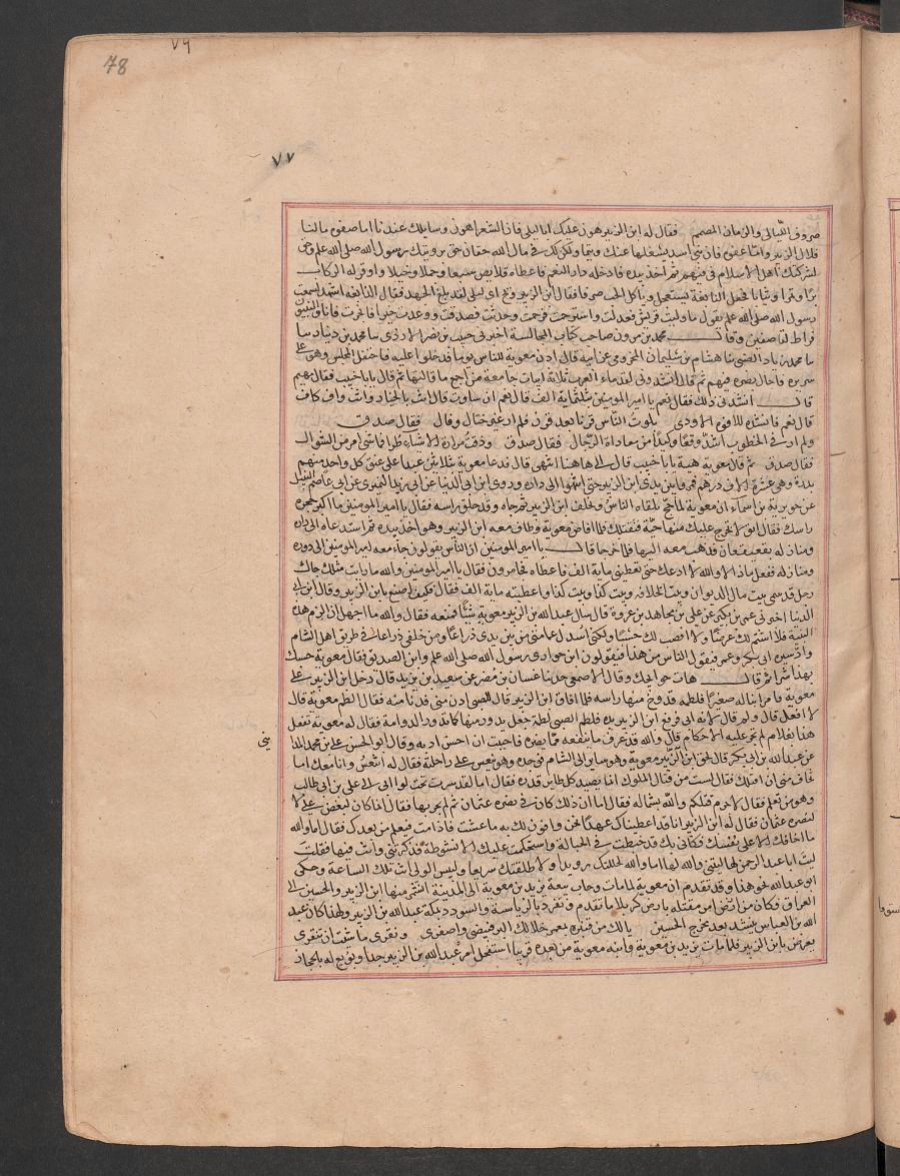 78
٧٦
٧٧
صروف الليالي والزمان المصمم فقال له ابن الزبير هون عليك ابا ليلى فان الشعر اهون وسايلك عندنا اما صفوة مالنا
فلال الزبير واما عفوه فان بني اسد يشغلها عنك وتيما ولكن لك في مال الله حقان حق برويتك رسول الله صلى الله علم وحق
لشركتك اهل الاسلام في فيهم ثم اخذ بيده فادخله دار النعم فاعطاه قلايص سبعا وجملا وخيلا واوقر له الركاب
برا وتمرا وثيابا فجعل النابغة يستعجل وياكل الحب صرفا فقال ابن الزبير ويح ابي ليلى لقد بلغ الجهد فقال النابغه اشهد لسمعت
رسول الله صلى الله علم يقول ما وليت قريش فعدلت واسترحمت فرحمت وحدثت فصدقت ووعدت خيرا فانجزت فانا والنبيون
فراط لقاصفين وقال محمد بن مروان صاحب كتاب المجالسة اخبرني حبيب بن نصر الازدي ثنا محمد بن دينار
ثنا هشام بن سليمان المخزومي عن ابيه قال اذن معوية للناس يوما فدخلوا عليه فاحتفل المجلس وهو على
سريره فاجال بصره فيهم ثم قال انشدوني لقدماء العرب ثلاثة ابيات جامعة من اجمع ما قالتها ثم قال يابا خبيب فقال مهيم
قال انشدني ذلك فقال نعم يا امير المومنين بثلثماية الف قال نعم ان ساوت قال انت بالخيار وانت واف كاف
قال نعم فانشده للافوه الاودي بلوت الناس قرنا بعد قرن فلم ار غير ختال وقال فقال صدق
ولم ار في الخطوب اشد وقعا وكيدا من معاداة الرجال فقال صدق وذقت مرارة الاشياء طرا فما شي امر من السوال
فقال صدق ثم قال معوية هيه يابا خبيب قال الى هاهنا انتهى قال فدعا معوية بثلاثين عبدا على عنق كل واحد منهم
بدرة وهي عشرة الاف درهم فمروا بين يدي ابن الزبير حتى انتهوا الى داره وروى ابن ابي الدنيا عن ابي زيد النميري عن ابي عاصم النبيل
عن جويرية بن اسماء ان معوية لما حج تلقاه الناس وتخلف ابن الزبير ثم جاه وقد حلق راسه فقال يا امير المومنين ما اكبر حجرة
راسك فقال اتق لا تخرج عليك منها حية فتقتلك فلما افاض معوية وطاف معه ابن الزبير وهو اخذ بيده ثم استدعاه الى داره
ومنازله بقعيقعان فذهب معه اليها فلما خرجا قال يا امير المومنين ان الناس يقولون جاء معه امير المومنين الى دوره
ومنازله ففعل ماذا لا والله لا ادعك حتى تعطيني ماية الف فاعطاه فجا مروان فقال يا امير المومنين والله ما رايت مثلك جاك
رجل قد سمى بيت مال الديوان وبيت الخلافه وبيت كذا وبيت كذا فاعطيته ماية الف فقال فكيف اصنع بابن الزبير وقال ابن ابي
الدنيا اخبرني عمر بن بكير عن علي بن مجاهد بن عروة قال سال عبد الله بن الزبير معوية شيئا فمنعه فقال والله ما اجهل ان الزم هذه
البنية فلا اشتم لك عرضا ولا اقصب لك حسبا ولكني اسدل عمامتي من بين يدي ذراعا ومن خلفي ذراعا في طريق اهل الشام
واذكر سيرة ابي بكر وعمر فيقول الناس من هذا فيقولون ابن حواري رسول الله صلى الله علم وابن الصديق فقال معوية حسبك
بهذا شرا ثم قال هات حوايجك وقال الاصمعي حدثنا غسان بن مضر عن سعيد بن يزيد قال دخل ابن الزبير على
معوية فامر ابنا له صغيرا فلطمه فدوخ منها راسه فلما افاق ابن الزبير قال للصبي ادن مني فدنا منه فقال الطم معوية قال
لا افعل قال ولم قال لانه ابي فرفع ابن الزبير يده فلطم الصبي لطمة جعل يدور منها كما تدور الدوامة فقال له معوية تفعل
هذا بغلام لم تجر عليه الاحكام قال والله قد عرف ما ينفعه مما يضره فاحببت ان احسن ادبه وقال ابو الحسن علي بن محمد المدا
يني
عن عبد الله بن ابي بكر قال لحق ابن الزبير معوية وهو ساير الى الشام فوجده وهو ينعس على راحلته فقال له اتنعس وانا معك اما
تخاف مني ان اقتلك فقال لست من قتال الملوك انما يصيد كل طاير قدره فقال اما لقد سرت تحت لواء ابي الى علي بن ابي طالب
وهو من تعلم فقال لا جرم قتلكم والله بشماله فقال اما ان ذلك كان في نصرة عثمان ثم لم يجز بها فقال انما كان لبغض علي لا
لنصرة عثمان فقال له ابن الزبير انا قد اعطيناك عهدا فنحن وافون لك به ما عشت فاذا مت فيعلم من بعدك فقال اما والله
ما اخافك الا على نفسك فكاني بك قد خبطت في الحبالة واستحكمت عليك الانشوطة فذكرتني وانت فيها فقلت
ليت ابا عبد الرحمن لها ليتني والله لها اما والله لحللتك رويدا ولاطلقتك سريعا ولبيس الولي انت تلك الساعة وحكى
ابو عبد الله نحو هذا وقد تقدم ان معوية لما مات وجات بيعة يزيد بن معوية الى المدينة انشمر منها ابن الزبير والحسين الى
العراق فكان من امر الحسين مقتله بارض كربلا ما تقدم وتفرد بالرياسة والسودد بمكة عبد الله بن الزبير ولهذا كان عبد
الله بن العباس ينشد بعد مخرج الحسين يا لك من قنبرة بمعمر خلا لك البر فبيضي واصفري ونقري ما شيت ان تنقري
يعرض بابن الزبير فلما مات يزيد بن معوية وابنه معوية من بعده قريبا استفحل امر عبد الله بن الزبير جدا وبويع له بالحجاز